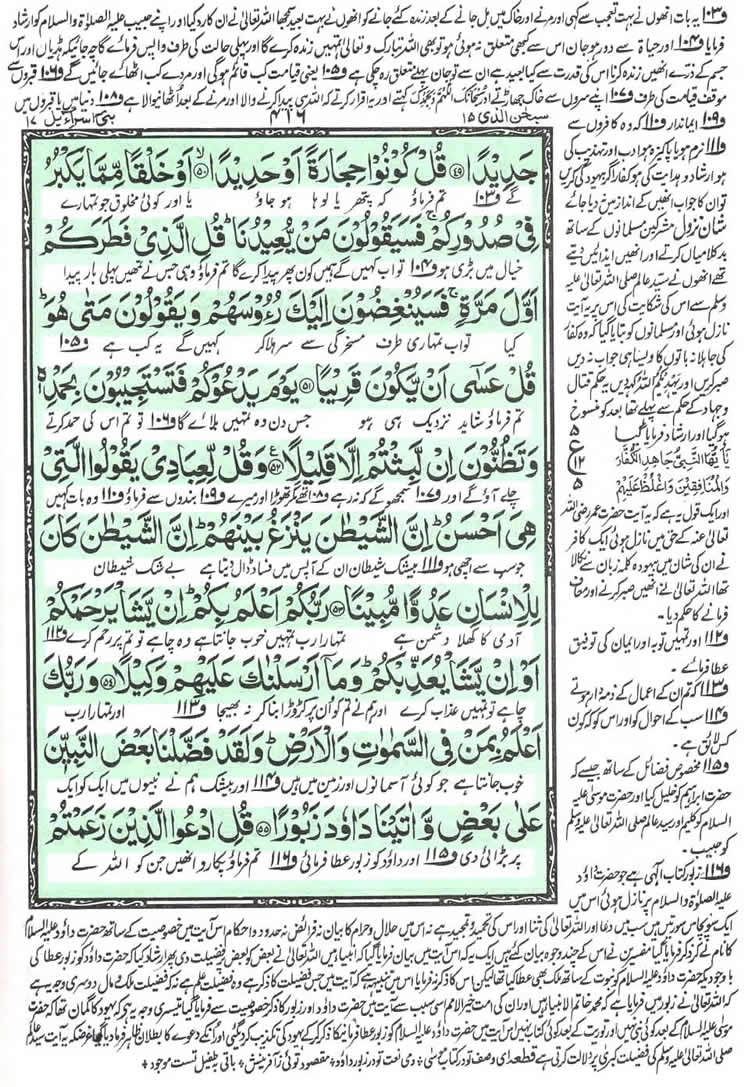 و۱۰۳ یہ بات انھوں نے بہت تعجب سے کہی اور مرنے اور خاک میں مل جانے کے بعد زندہ کئے جانے کو انھوں نے بہت بعید سمجھا اللہ تعالیٰ نے ان کا رد کیا اور اپنے حبیب علیہ الصلوٰۃ والسلام کو ارشاد
فرمایا و۱۰۴ اور حیاۃ سے دور ہو جان اس سے کبھی متعلق نہ ہوئی ہو تو بھی اللہ تبارک و تعالیٰ تمہیں زندہ کرے گا اور پہلی حالت کی طرف واپس فرمائے گا چہ جائیکہ ہڈیاں اور اس
جسم کے ذرے انھیں زندہ کرنا اس کی قدرت سے کیا بعید ہے ان سے تو جان پہلے متعلق رہ چکی ہے و۱۰۵ یعنی قیامت کب قائم ہوگی اور مردے کب اٹھائے جائیں گے و۱۰۶ قبروں سے
موقف قیامت کی طرف و۱۰۷ اپنے سروں سے خاک جھاڑتے اور سُبْحَانَكَ اللّٰهُمَّ وَبِحَمْدِكَ کہتے اور یہ اقرار کرتے کہ اللہ ہی پیدا کرنے والا اور مرنے کے بعد اٹھانے والا ہے و۱۰۸ دنیا میں یا قبروں میں
سبحٰن الذی ۱۵
۴۱۶
بنی اسرآءیل ۱۷
جَدِيْدًا ﴿۴۹﴾ قُلْ كُوْنُوْا حِجَارَةً اَوْ حَدِيْدًا ﴿۵۰﴾ اَوْ خَلْقًا مِّمَّا يَكْبُرُ
گے و۱۰۳ تم فرماؤ کہ پتھر یا لوہا ہو جاؤ یا اور کوئی مخلوق جو تمہارے
فِيْ صُدُوْرِكُمْ ۚ فَسَيَقُوْلُوْنَ مَنْ يُّعِيْدُنَا ؕ قُلِ الَّذِيْ فَطَرَكُمْ
خیال میں بڑی ہو و۱۰۴ تو اب کہیں گے ہمیں کون پھر پیدا کرے گا تم فرماؤ وہی جس نے تمھیں پہلی بار پیدا
اَوَّلَ مَرَّةٍ ۚ فَسَيُنْغِضُوْنَ اِلَيْكَ رُءُوْسَهُمْ وَيَقُوْلُوْنَ مَتٰى هُوَ ؕ
کیا تو اب تمہاری طرف مسخرگی سے سر ہلا کر کہیں گے یہ کب ہے و۱۰۵
قُلْ عَسٰۤى اَنْ يَّكُوْنَ قَرِيْبًا ﴿۵۱﴾ يَوْمَ يَدْعُوْكُمْ فَتَسْتَجِيْبُوْنَ بِحَمْدِهٖ
تم فرماؤ شاید نزدیک ہی ہو جس دن وہ تمہیں بلائے گا و۱۰۶ تو تم اس کی حمد کرتے
وَتَظُنُّوْنَ اِنْ لَّبِثْتُمْ اِلَّا قَلِيْلًا ﴿۵۲﴾ وَقُلْ لِّعِبَادِيْ يَقُوْلُوا الَّتِيْ
چلے آؤ گے اور و۱۰۷ سمجھو گے کہ نہ رہے و۱۰۸ تھے مگر تھوڑا اور میرے و۱۰۹ بندوں سے فرماؤ و۱۱۰ وہ بات کہیں
هِيَ اَحْسَنُ ؕ اِنَّ الشَّيْطٰنَ يَنْزَغُ بَيْنَهُمْ ؕ اِنَّ الشَّيْطٰنَ كَانَ
جو سب سے اچھی ہو و۱۱۱ بیشک شیطان ان کے آپس میں فساد ڈال دیتا ہے بے شک شیطان
لِلْاِنْسَانِ عَدُوًّا مُّبِيْنًا ﴿۵۳﴾ رَبُّكُمْ اَعْلَمُ بِكُمْ ؕ اِنْ يَّشَاْ يَرْحَمْكُمْ
آدمی کا کھلا دشمن ہے تمہارا رب تمہیں خوب جانتا ہے وہ چاہے تو تم پر رحم کرے و۱۱۲
اَوْ اِنْ يَّشَاْ يُعَذِّبْكُمْ ؕ وَمَاۤ اَرْسَلْنٰكَ عَلَيْهِمْ وَكِيْلًا ﴿۵۴﴾ وَرَبُّكَ
چاہے تو تمہیں عذاب کرے اور ہم نے تم کو ان پر کڑوڑا بنا کر نہ بھیجا و۱۱۳ اور تمہارا رب
اَعْلَمُ بِمَنْ فِي السَّمٰوٰتِ وَالْاَرْضِ ؕ وَلَقَدْ فَضَّلْنَا بَعْضَ النَّبِيّٖنَ
خوب جانتا ہے جو کوئی آسمانوں اور زمین میں ہیں و۱۱۴ اور بیشک ہم نے نبیوں میں ایک کو ایک
عَلٰى بَعْضٍ وَّاٰتَيْنَا دَاوٗدَ زَبُوْرًا ﴿۵۵﴾ قُلِ ادْعُوا الَّذِيْنَ زَعَمْتُمْ
پر بڑائی دی و۱۱۵ اور داؤد کو زبور عطا فرمائی و۱۱۶ تم فرماؤ پکارو انھیں جن کو اللہ کے
و۱۰۹ ایماندار و۱۱۰ کہ وہ کافروں سے
و۱۱۱ نرم ہو یا پاکیزہ ہو ادب اور تہذیب کی
ہو ارشاد و ہدایت کی ہو کفار اگر بیہودگی کریں
تو ان کا جواب انھیں کے انداز میں نہ دیا جائے
شان نزول مشرکین مسلمانوں کے ساتھ
بدکلامیاں کرتے اور انھیں ایذائیں دیتے
تھے انھوں نے سید عالم صلی اللہ تعالیٰ علیہ
وسلم سے اس کی شکایت کی اس پر یہ آیت
نازل ہوئی اور مسلمانوں کو بتایا گیا کہ وہ کفار
کی جاہلانہ باتوں کا ویسا ہی جواب نہ دیں
صبر کریں اور یَھْدِیْکُمُ اللّٰہُ کہدیں یہ حکم قتال
و جہاد کے حکم سے پہلے تھا بعد کو منسوخ
ہو گیا اور ارشاد فرمایا گیا
يٰۤاَيُّهَا النَّبِيُّ جَاهِدِ الْكُفَّارَ
وَالْمُنٰفِقِيْنَ وَاغْلُظْ عَلَيْهِمْ
۵
ع
۱۲
۵
اور ایک قول یہ ہے کہ یہ آیت حضرت عمر رضی اللہ
تعالیٰ عنہ کے حق میں نازل ہوئی ایک کافر
نے ان کی شان میں بیہودہ کلمہ زبان سے نکالا
تھا اللہ تعالیٰ نے انھیں صبر کرنے اور معاف
فرمانے کا حکم دیا۔
و۱۱۲ اور تمہیں توبہ اور ایمان کی توفیق
عطا فرمائے۔
و۱۱۳ کہ تم ان کے اعمال کے ذمہ دار ہوتے
و۱۱۴ سب کے احوال کو اور اس کو کہ کون
کس لائق ہے۔
و۱۱۵ مخصوص فضائل کے ساتھ جیسے کہ
حضرت ابراہیم کو خلیل کیا اور حضرت موسیٰ علیہ
السلام کو کلیم اور سید عالم صلی اللہ تعالیٰ علیہ وسلم
کو حبیب۔
و۱۱۶ زبور کتاب الٰہی ہے جو حضرت داؤد
علیہ الصلوٰۃ والسلام پر نازل ہوئی اس میں
ایک سو پچاس سورتیں ہیں سب میں دعا اور اللہ تعالیٰ کی ثنا اور اس کی تحمید و تمجید ہے نہ اس میں حلال و حرام کا بیان نہ فرائض نہ حدود و احکام اس آیت میں خصوصیت کے ساتھ حضرت داؤد علیہ السلام
کا نام لے کر ذکر فرمایا گیا مفسرین نے اس کے چند وجوہ بیان کئے ہیں ایک یہ کہ اس آیت میں بیان فرمایا گیا کہ انبیا میں اللہ تعالیٰ نے بعض کو بعض پر فضیلت دی پھر ارشاد کیا کہ حضرت داؤد کو زبور عطا کی
با وجودیکہ حضرت داؤد علیہ السلام کو نبوت کے ساتھ ملک بھی عطا کیا تھا لیکن اس کا ذکر نہ فرمایا اس میں تنبیہ ہے کہ آیت میں جس فضیلت کا ذکر ہے وہ فضیلت علم ہے نہ کہ فضیلت ملک و مال دوسری وجہ یہ ہے
کہ اللہ تعالیٰ نے زبور میں فرمایا ہے کہ محمد خاتم الانبیا ہیں اور ان کی امت خیر الامم اسی سبب سے آیت میں حضرت داؤد اور زبور کا ذکر خصوصیت سے فرمایا گیا تیسری وجہ یہ ہے کہ یہود کا گمان تھا کہ حضرت
موسیٰ علیہ السلام کے بعد کوئی نبی نہیں اور توریت کے بعد کوئی کتاب نہیں اس آیت میں حضرت داؤد علیہ السلام کو زبور عطا فرمانے کا ذکر کر کے یہود کی تکذیب کر دی گئی اور ان کے دعوے کا بطلان ظاہر فرما دیا گیا غرضکہ یہ آیت سید عالم
صلی اللہ تعالیٰ علیہ وسلم کی فضیلت کبریٰ پر دلالت کرتی ہے قطعہ اے وصف تو در کتاب موسیٰ ٭ وی نعت تو در زبور داؤد ٭ مقصود توئی ز آفرینش ٭ باقی بطفیل تست موجود ٭